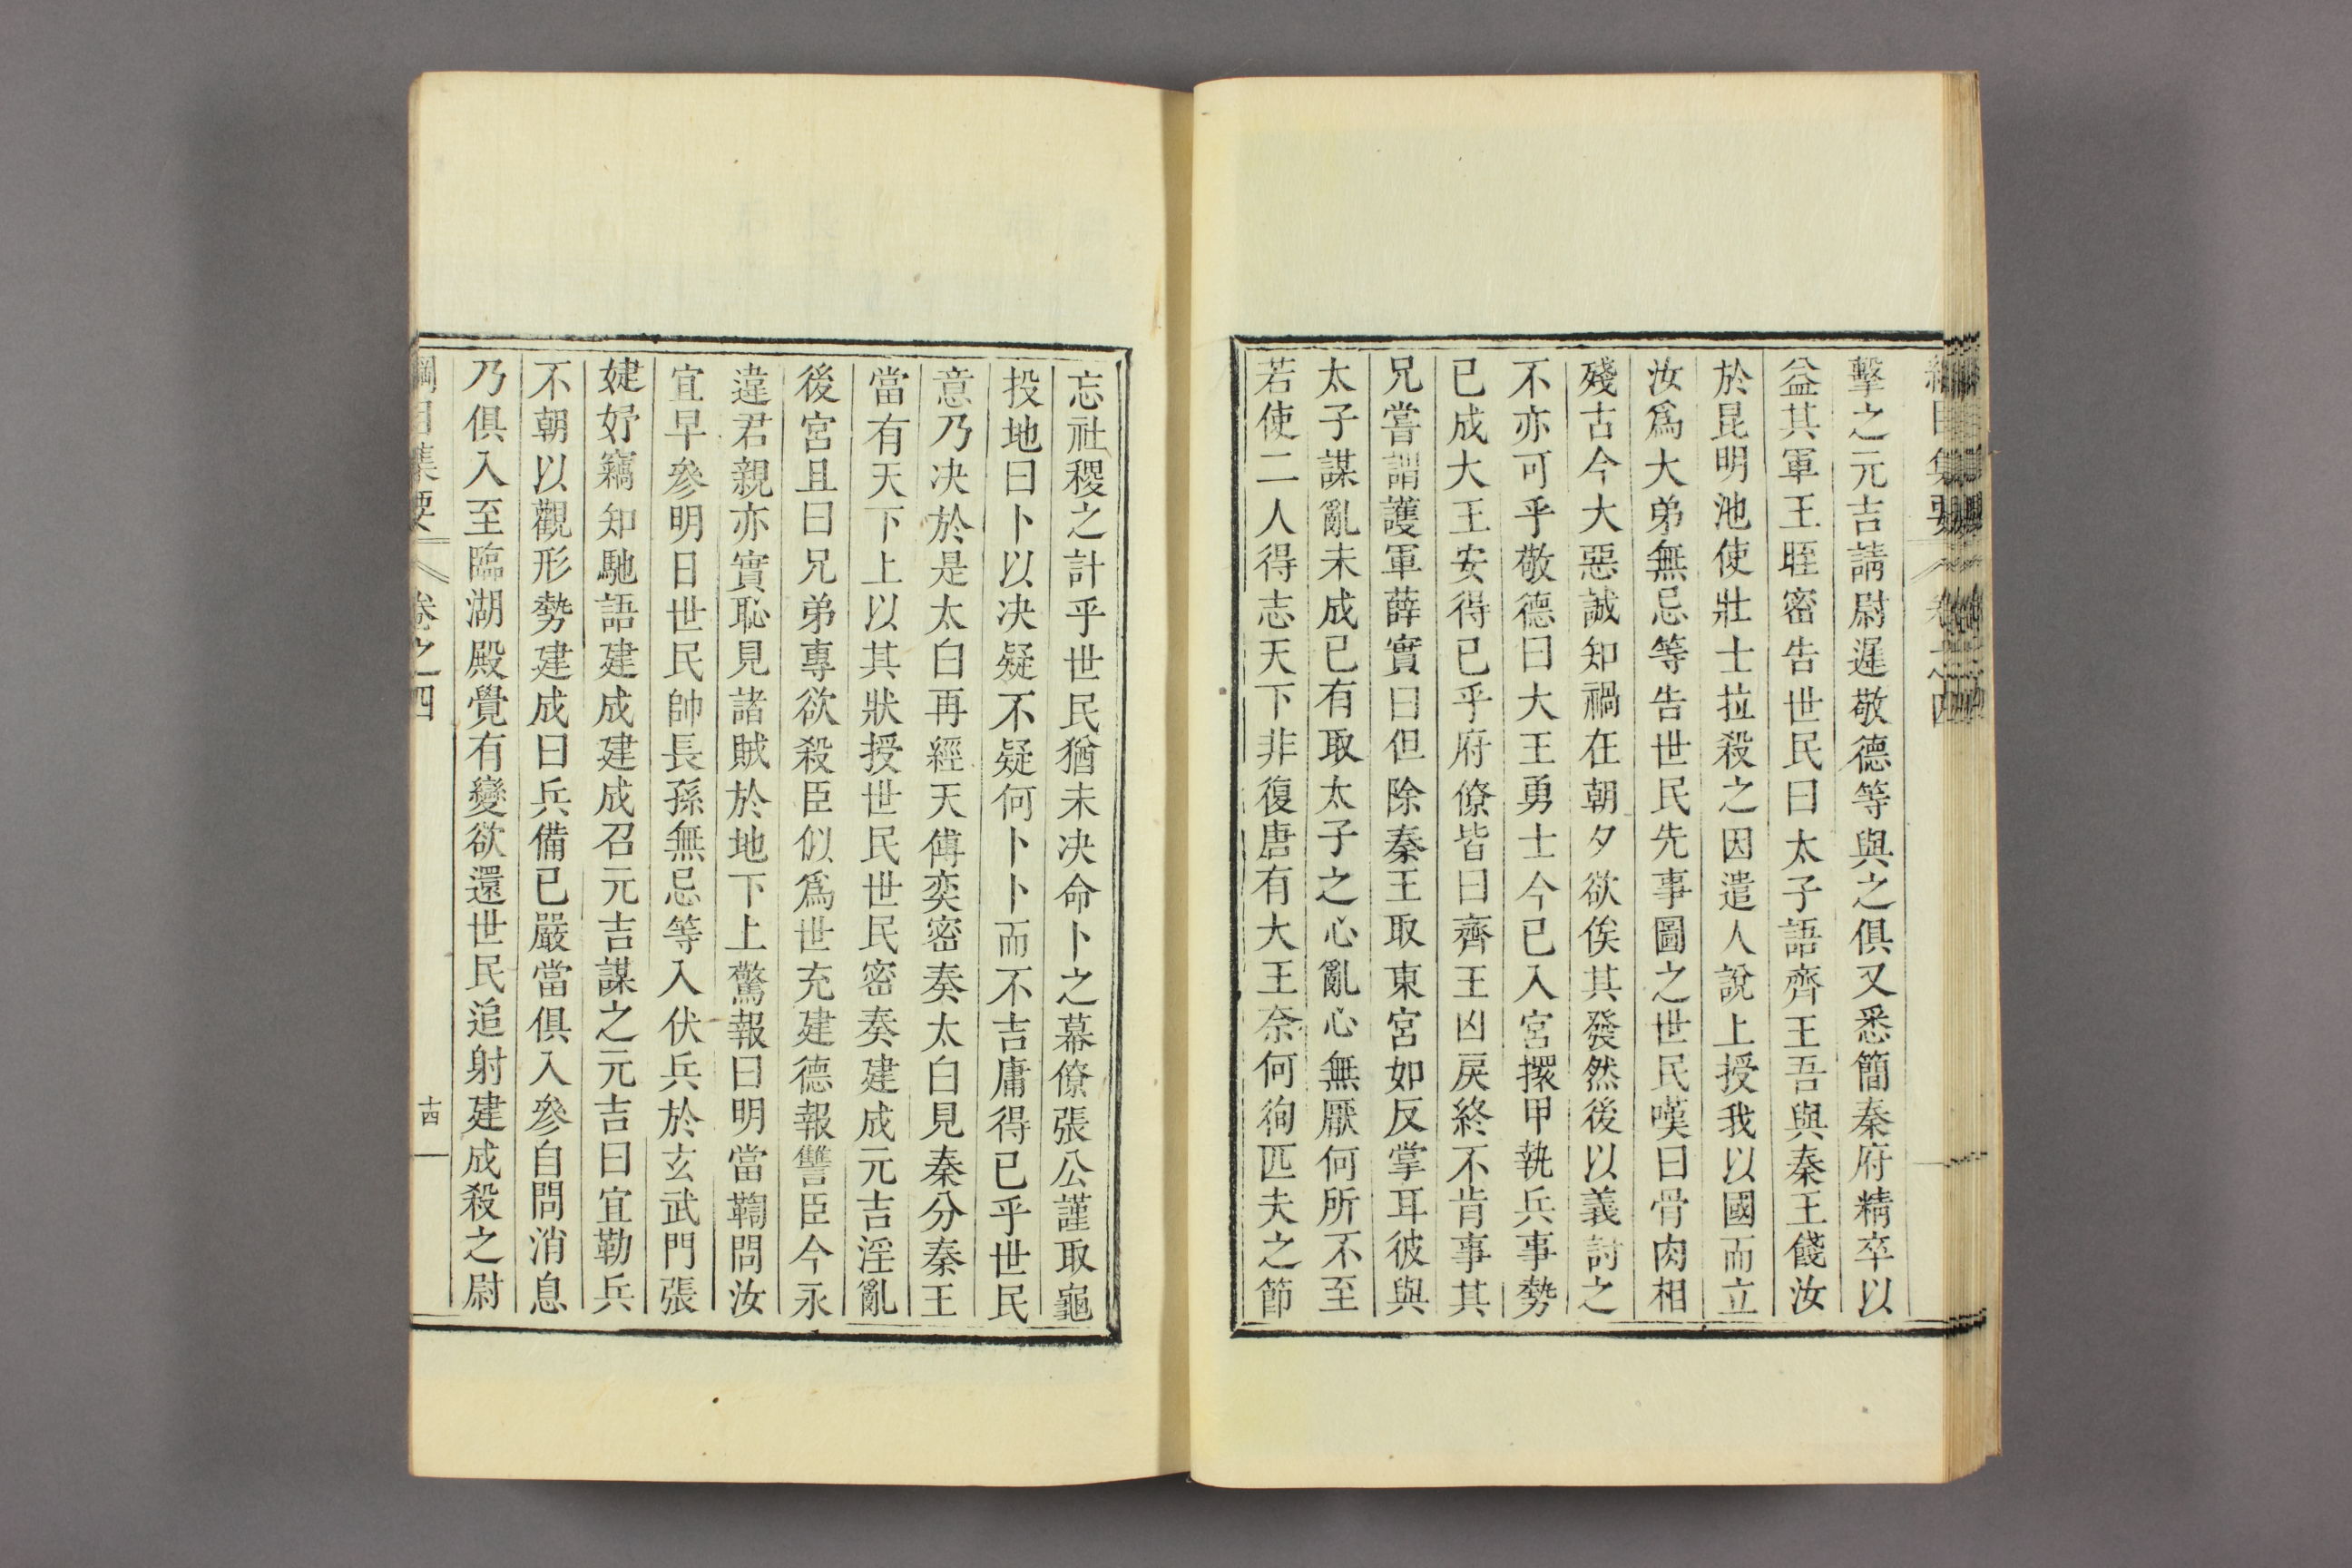 擊之元吉請尉遲敬德等與之俱又悉簡秦府精卒以
益其軍王晊密告世民曰太子語齊王吾與秦王餞汝
於昆明池使壯士拉殺之因遣人說上授我以國而立
汝爲大弟無忌等告世民先事圖之世民嘆曰骨肉相
殘古今大惡誠知禍在朝夕欲俟其發然後以義討之
不亦可乎敬德曰大王勇士今已入宮擐甲執兵事勢
已成大王安得已乎府僚皆曰齊王凶戾終不肯事其
兄嘗謂護軍薛實曰但除秦王取東宮如反掌耳彼與
太子謀亂未成已有取太子之心亂心無厭何所不至
若使二人得志天下非復唐有大王奈何徇匹夫之節
忘社稷之計乎世民猶未决命卜之幕僚張公謹取龜
投地曰卜以决疑不疑何卜卜而不吉庸得已乎世民
意乃决於是太白再經天傅奕密奏太白見秦分秦王
當有天下上以其狀授世民世民密奏建成元吉淫亂
後宮且曰兄弟專欲殺臣似爲世充建德報讐臣今永
違君親亦實恥見諸賊於地下上驚報曰明當鞫問汝
宜早參明日世民帥長孫無忌等入伏兵於玄武門張
婕妤竊知馳語建成建成召元吉謀之元吉曰宜勒兵
不朝以觀形勢建成曰兵備已嚴當俱入參自問消息
乃俱入至臨湖殿覺有變欲還世民追射建成殺之尉
綱目集要 卷之四 十四